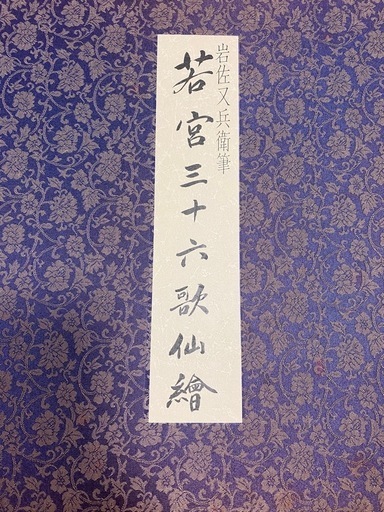 岩佐又兵衛筆
若宮三十六歌仙繪